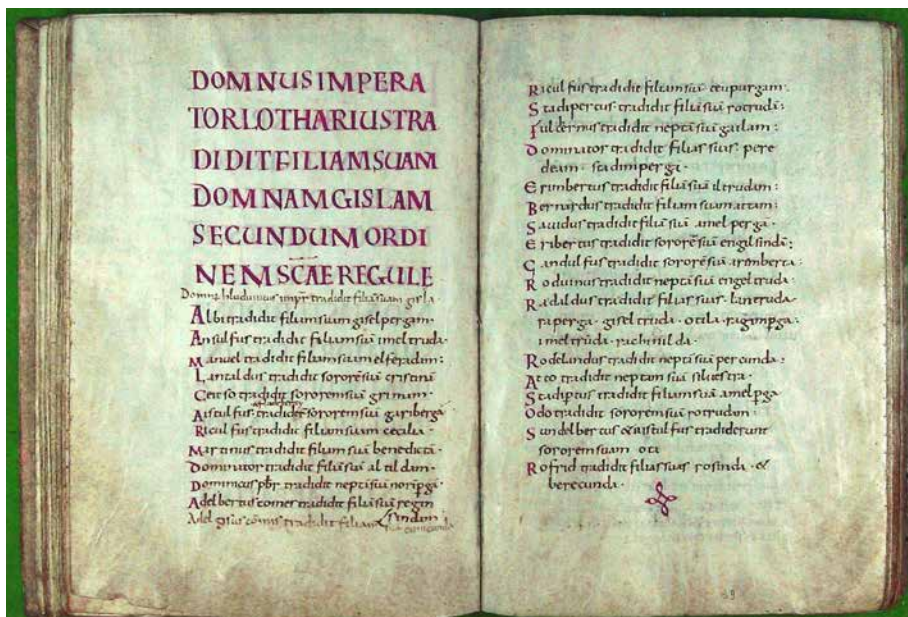 DOMNUS IMPERA
TOR LOTHARIUS TRA
DIDIT FILIAM SUAM
DOMNAM GISLAM
SECUNDUM ORDI
NEM SCAE REGULE
tradidit filiā suam gisla
Albi tradidit filiam suam giselpergam.
Ansulfus tradidit filiam suā imeltruda.
Manuel tradidit filiam suam elferadam:
Lantaldus tradidit sororē suā cristinā
Ceitso tradidit sororem suā grimam.
Aistulfus tradidit sororem suā garibergā
Riculfus tradidit filiam suam cecilia.
Martinus tradidit filiam suā benedictā.
Dominator tradidit filiā suā altildam.
Dominicus pbr tradidit neptā suā
Adelbertus comes tradidit filiā suā regin
sindam
Adelgisus comis tradidit filiam
Riculfus tradidit filiam suā teupurgam.
Stadipertus tradidit filiā suā rotrudā:
tradidit neptā suā gailam:
Dominator tradidit filias suas. pere
deum. stadimperga.
Erimbertus tradidit filiā suā iltrudam:
Bernardus tradidit filiam suam attam:
Sauidus tradidit filiā suā amelperga.
Eribertus tradidit sororē suā engilsindā:
Gandulfus tradidit sororē suā aremberta:
Roduinus tradidit neptā suā engeltruda.
Radaldus tradidit filias suas. lantruda.
raperga. giseltruda. otila.
imeltruda. rachinilda.
Rodelandus tradidit neptā suā percunda:
Atto tradidit neptam suā siluestra.
tradidit filiam suā
Odo tradidit sororem suā rotrudam:
Sundelbertus & aistulfus tradiderunt
sororem suam ota
Rofrid tradidit filias suas rosinda. &
berecunda.